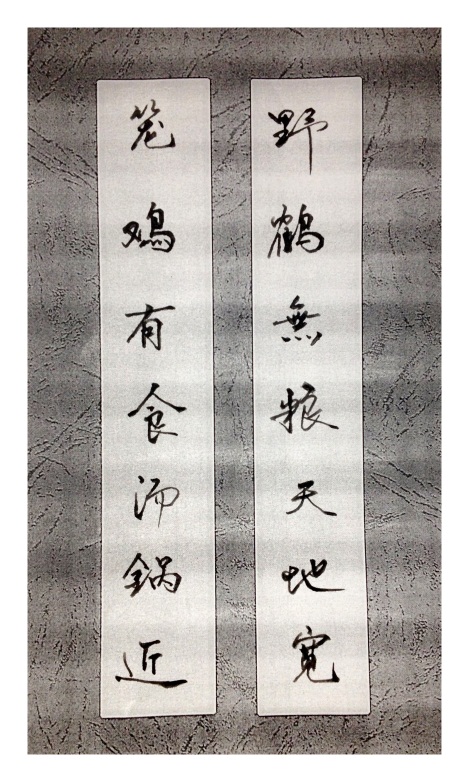 野鶴無粮天地寬
笼鸡有食汤鍋近